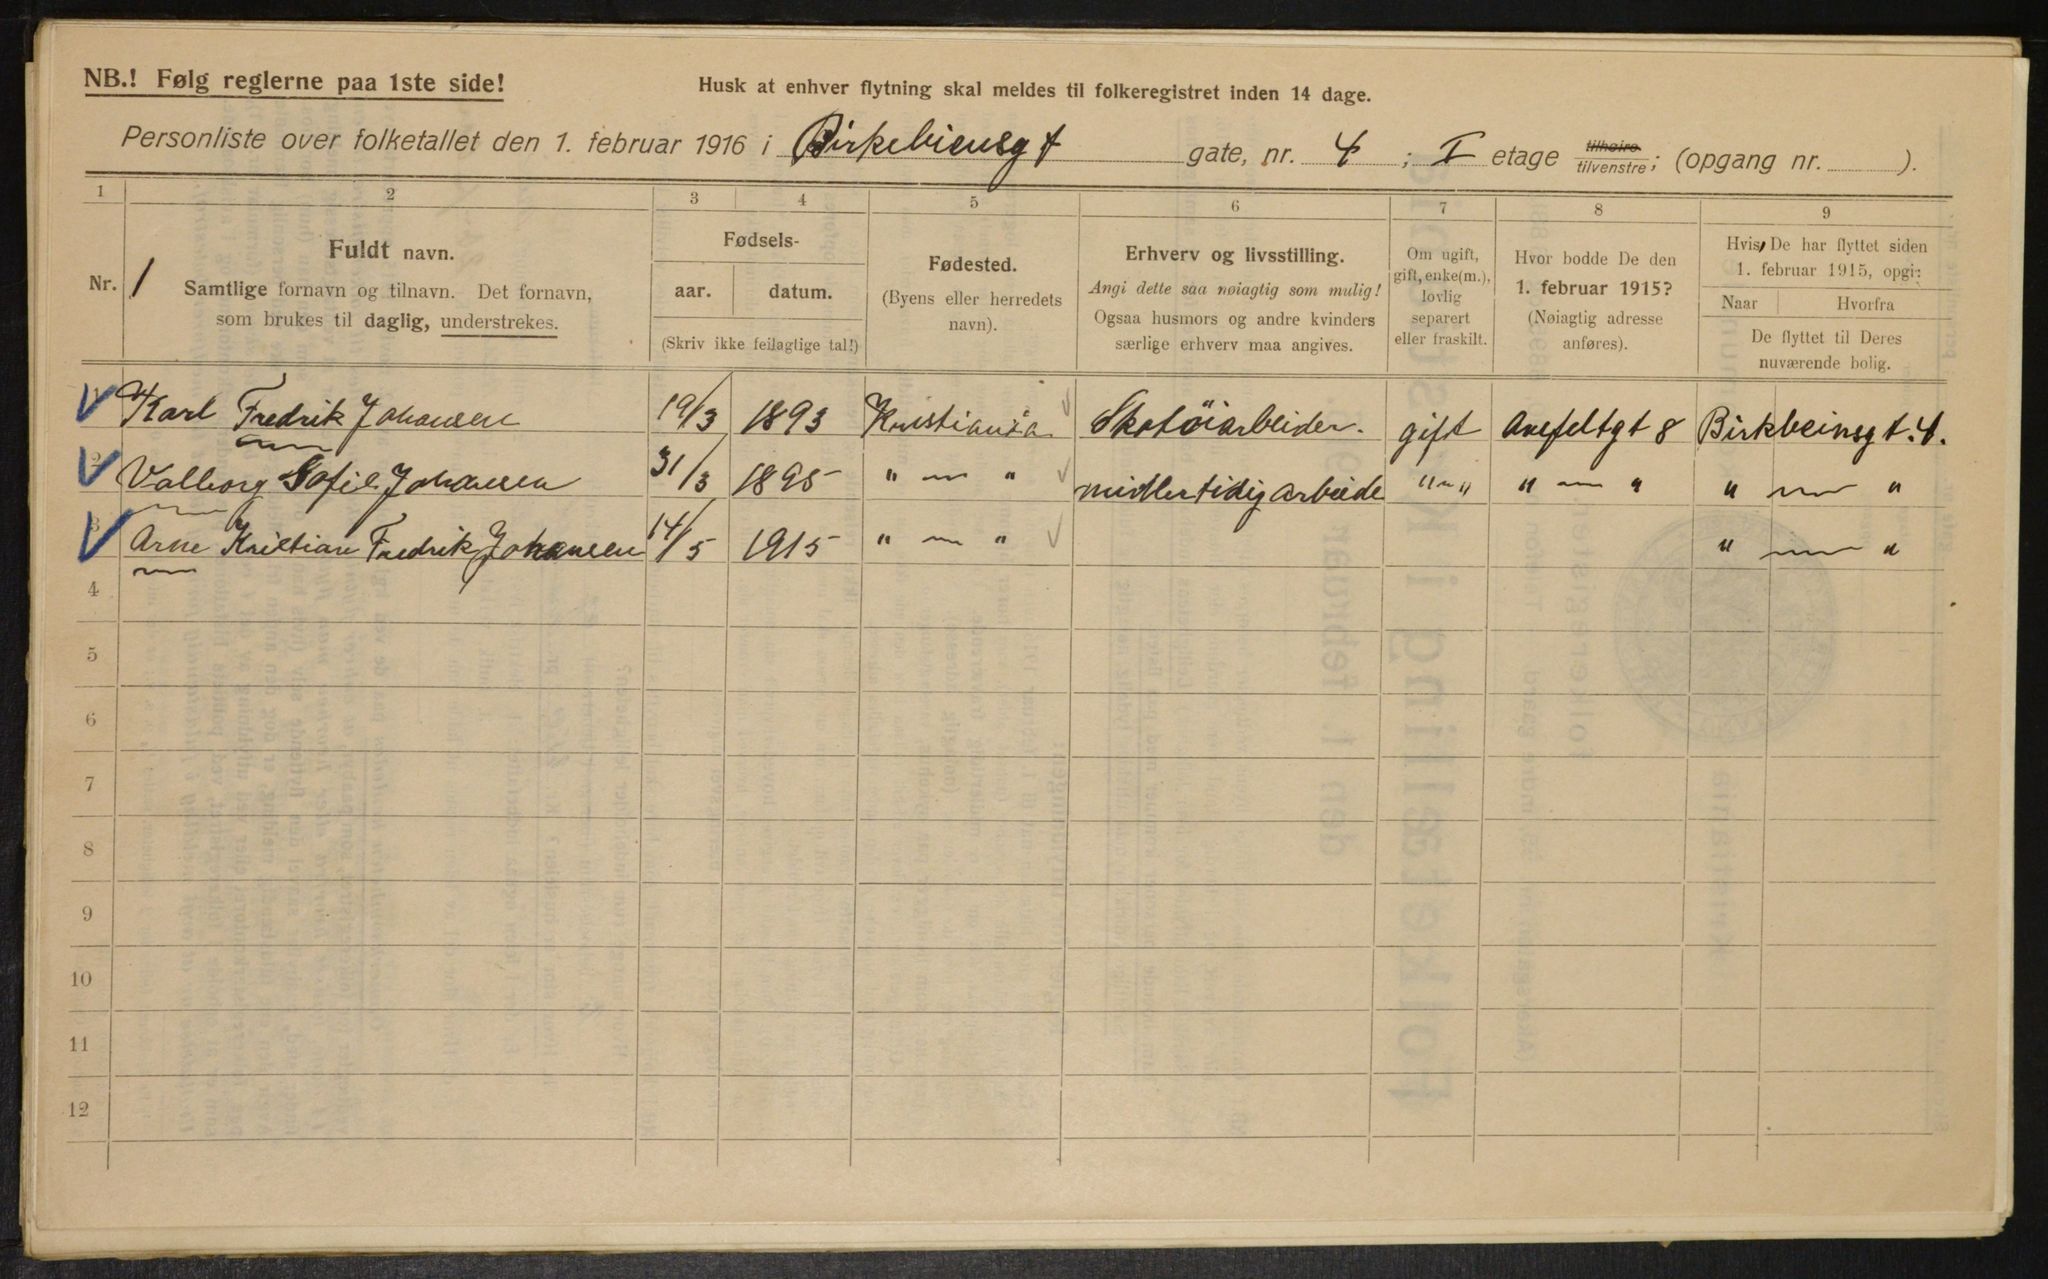 NB.! Følg reglerne paa 1ste side!
Husk at enhver flytning skal meldes til folkeregistret inden 14 dage.
Personliste over folketallet den 1. februar 1916 i Birkebiensgt gate, nr. 4 ; I etage tilhøire tilvenstre; (opgang nr. ).
1 2 3 4 5 6 7 8 9
Nr. 1
Fuldt navn.
Samtlige fornavn og tilnavn. Det fornavn,
som brukes til daglig, understrekes.
Fødsels-
aar. datum.
(Skriv ikke feilagtige tal!)
Fødested.
(Byens eller herredets
navn).
Erhverv og livsstilling.
Angi dette saa nøiagtig som mulig!
Ogsaa husmors og andre kvinders
særlige erhverv maa angives.
Om ugift,
gift, enke(m.),
lovlig
separert
eller fraskilt.
Hvor bodde De den
1. februar 1915?
(Nøiagtig adresse
anføres).
Hvis De har flyttet siden
1. februar 1915, opgi:
Naar Hvorfra
De flyttet til Deres
nuværende bolig.
Karl Fredrik Johansen 19/3 1893 Kristiania Skotöiarbeider. gift Anefeltgt 8 Birkbeinsgt. 4.
2 Valborg Sofie Johansen 31/3 1895 " — " midlertidig arbeide " — " " — " " — "
3 Arne Kristian Fredrik Johansen 14/5 1915 " — " " — "
4
5
6
7
8
9
10
11
12